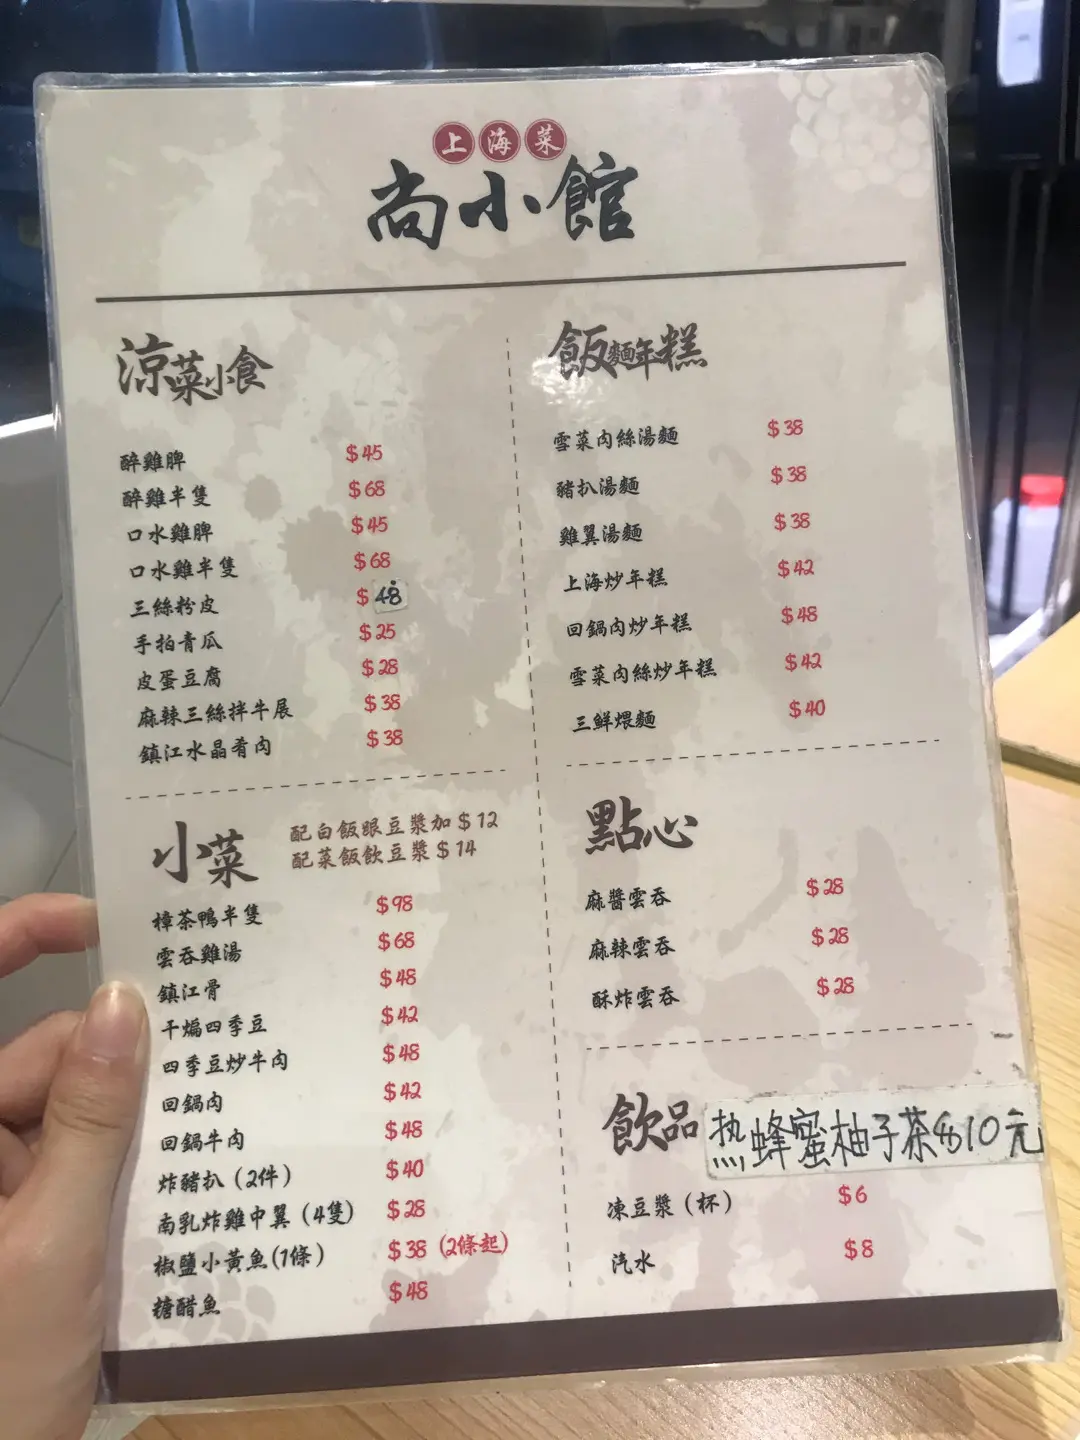 上海菜
尚小館
涼菜小食
醉雞脾 $45
醉雞半隻 $68
口水雞脾 $45
口水雞半隻 $68
三絲粉皮 $48
手拍青瓜 $25
皮蛋豆腐 $28
麻辣三絲拌牛展 $38
鎮江水晶肴肉 $38
小菜
配白飯跟豆漿加$12
配菜飯飲豆漿$14
樟茶鴨半隻 $98
雲吞雞湯 $68
鎮江骨 $48
干煸四季豆 $42
四季豆炒牛肉 $48
回鍋肉 $42
回鍋牛肉 $48
炸豬扒（2件） $40
南乳炸雞中翼（4隻） $28
椒鹽小黃魚(1條） $38 (2條起)
糖醋魚 $48
飯麵年糕
雪菜肉絲湯麵 $38
豬扒湯麵 $38
雞翼湯麵 $38
上海炒年糕 $42
回鍋肉炒年糕 $48
雪菜肉絲炒年糕 $42
三鮮煨麵 $40
點心
麻醬雲吞 $28
麻辣雲吞 $28
酥炸雲吞 $28
飲品
热蜂蜜柚子茶$10元
凍豆漿（杯） $6
汽水 $8